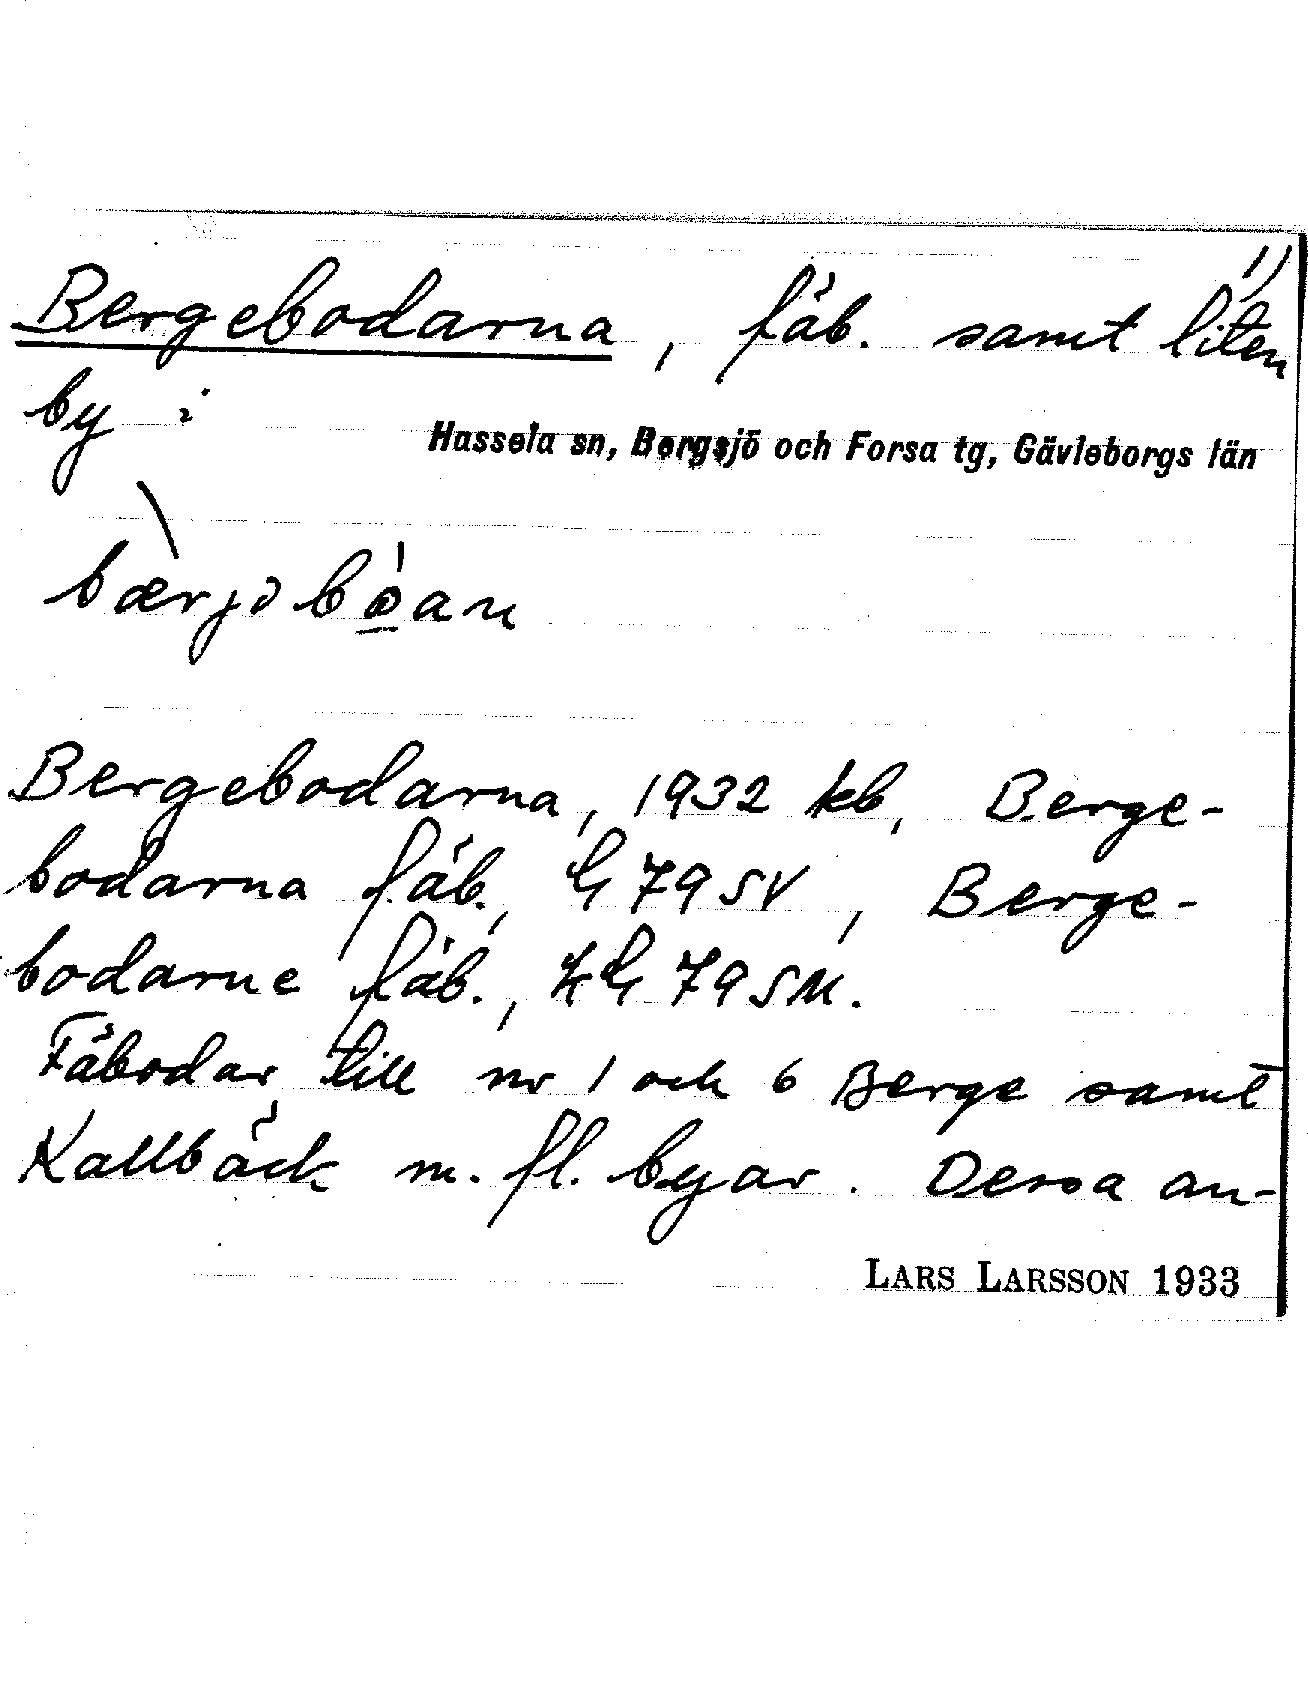 1)
Bergebodarna, fäb. samt liten
by i
Hassela sn, Bergsjö och Forsa tg, Gävleborgs län
bærjəbo̱an
Bergebodarna, 1932 kb, Berge-
bodarna fäb., G 79 SV, Berge-
bodarne fäb., 79 SM.
Fäbodar till nr 1 och 6 Berge samt
Kallbäck m. fl. byar. Dessa an-
LARS LARSSON 1933